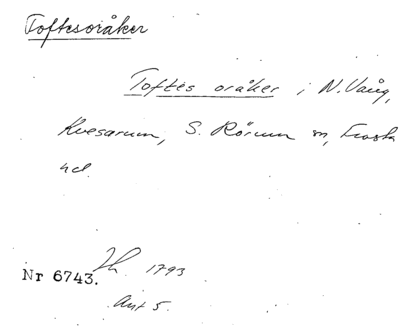 Toftesoråker
Toftes oråker i N. Vång,
Kvesarum, S. Rörum sn, Frosta
hd.
Nr 6743. Lh. 1793
Akt 5.